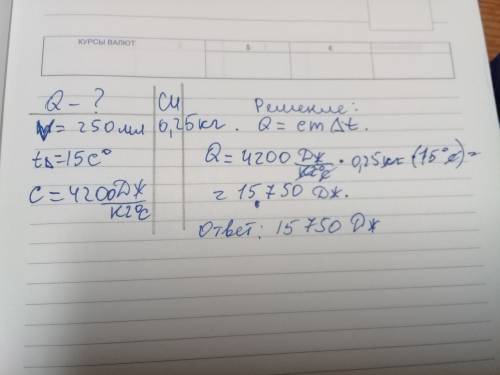 КУРСЫ ВАЛЮТ $ €
Q - ?
V = 250 мл
t∆ = 15 C°
C = 4200 Дж/кг°C
СИ
0,25 кг.
Решение:
Q = cm∆t.
Q = 4200 Дж/кг°C · 0,25 кг · (15°C) =
= 15 750 Дж.
Ответ: 15 750 Дж